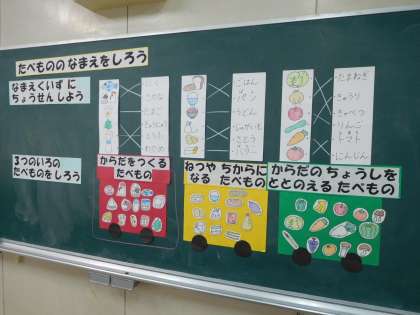 たべものの なまえをしろう
なまえくいず に
ちょうせん しよう
ごはん
パン
うどん
じゃがいも
さとう
バター
たまねぎ
きゅうり
きゃべつ
りんご
トマト
にんじん
3つのいろの
たべものをしろう
からだをつくる
たべもの
ねつや ちからに
なる たべもの
からだの ちょうしを
ととのえる たべもの